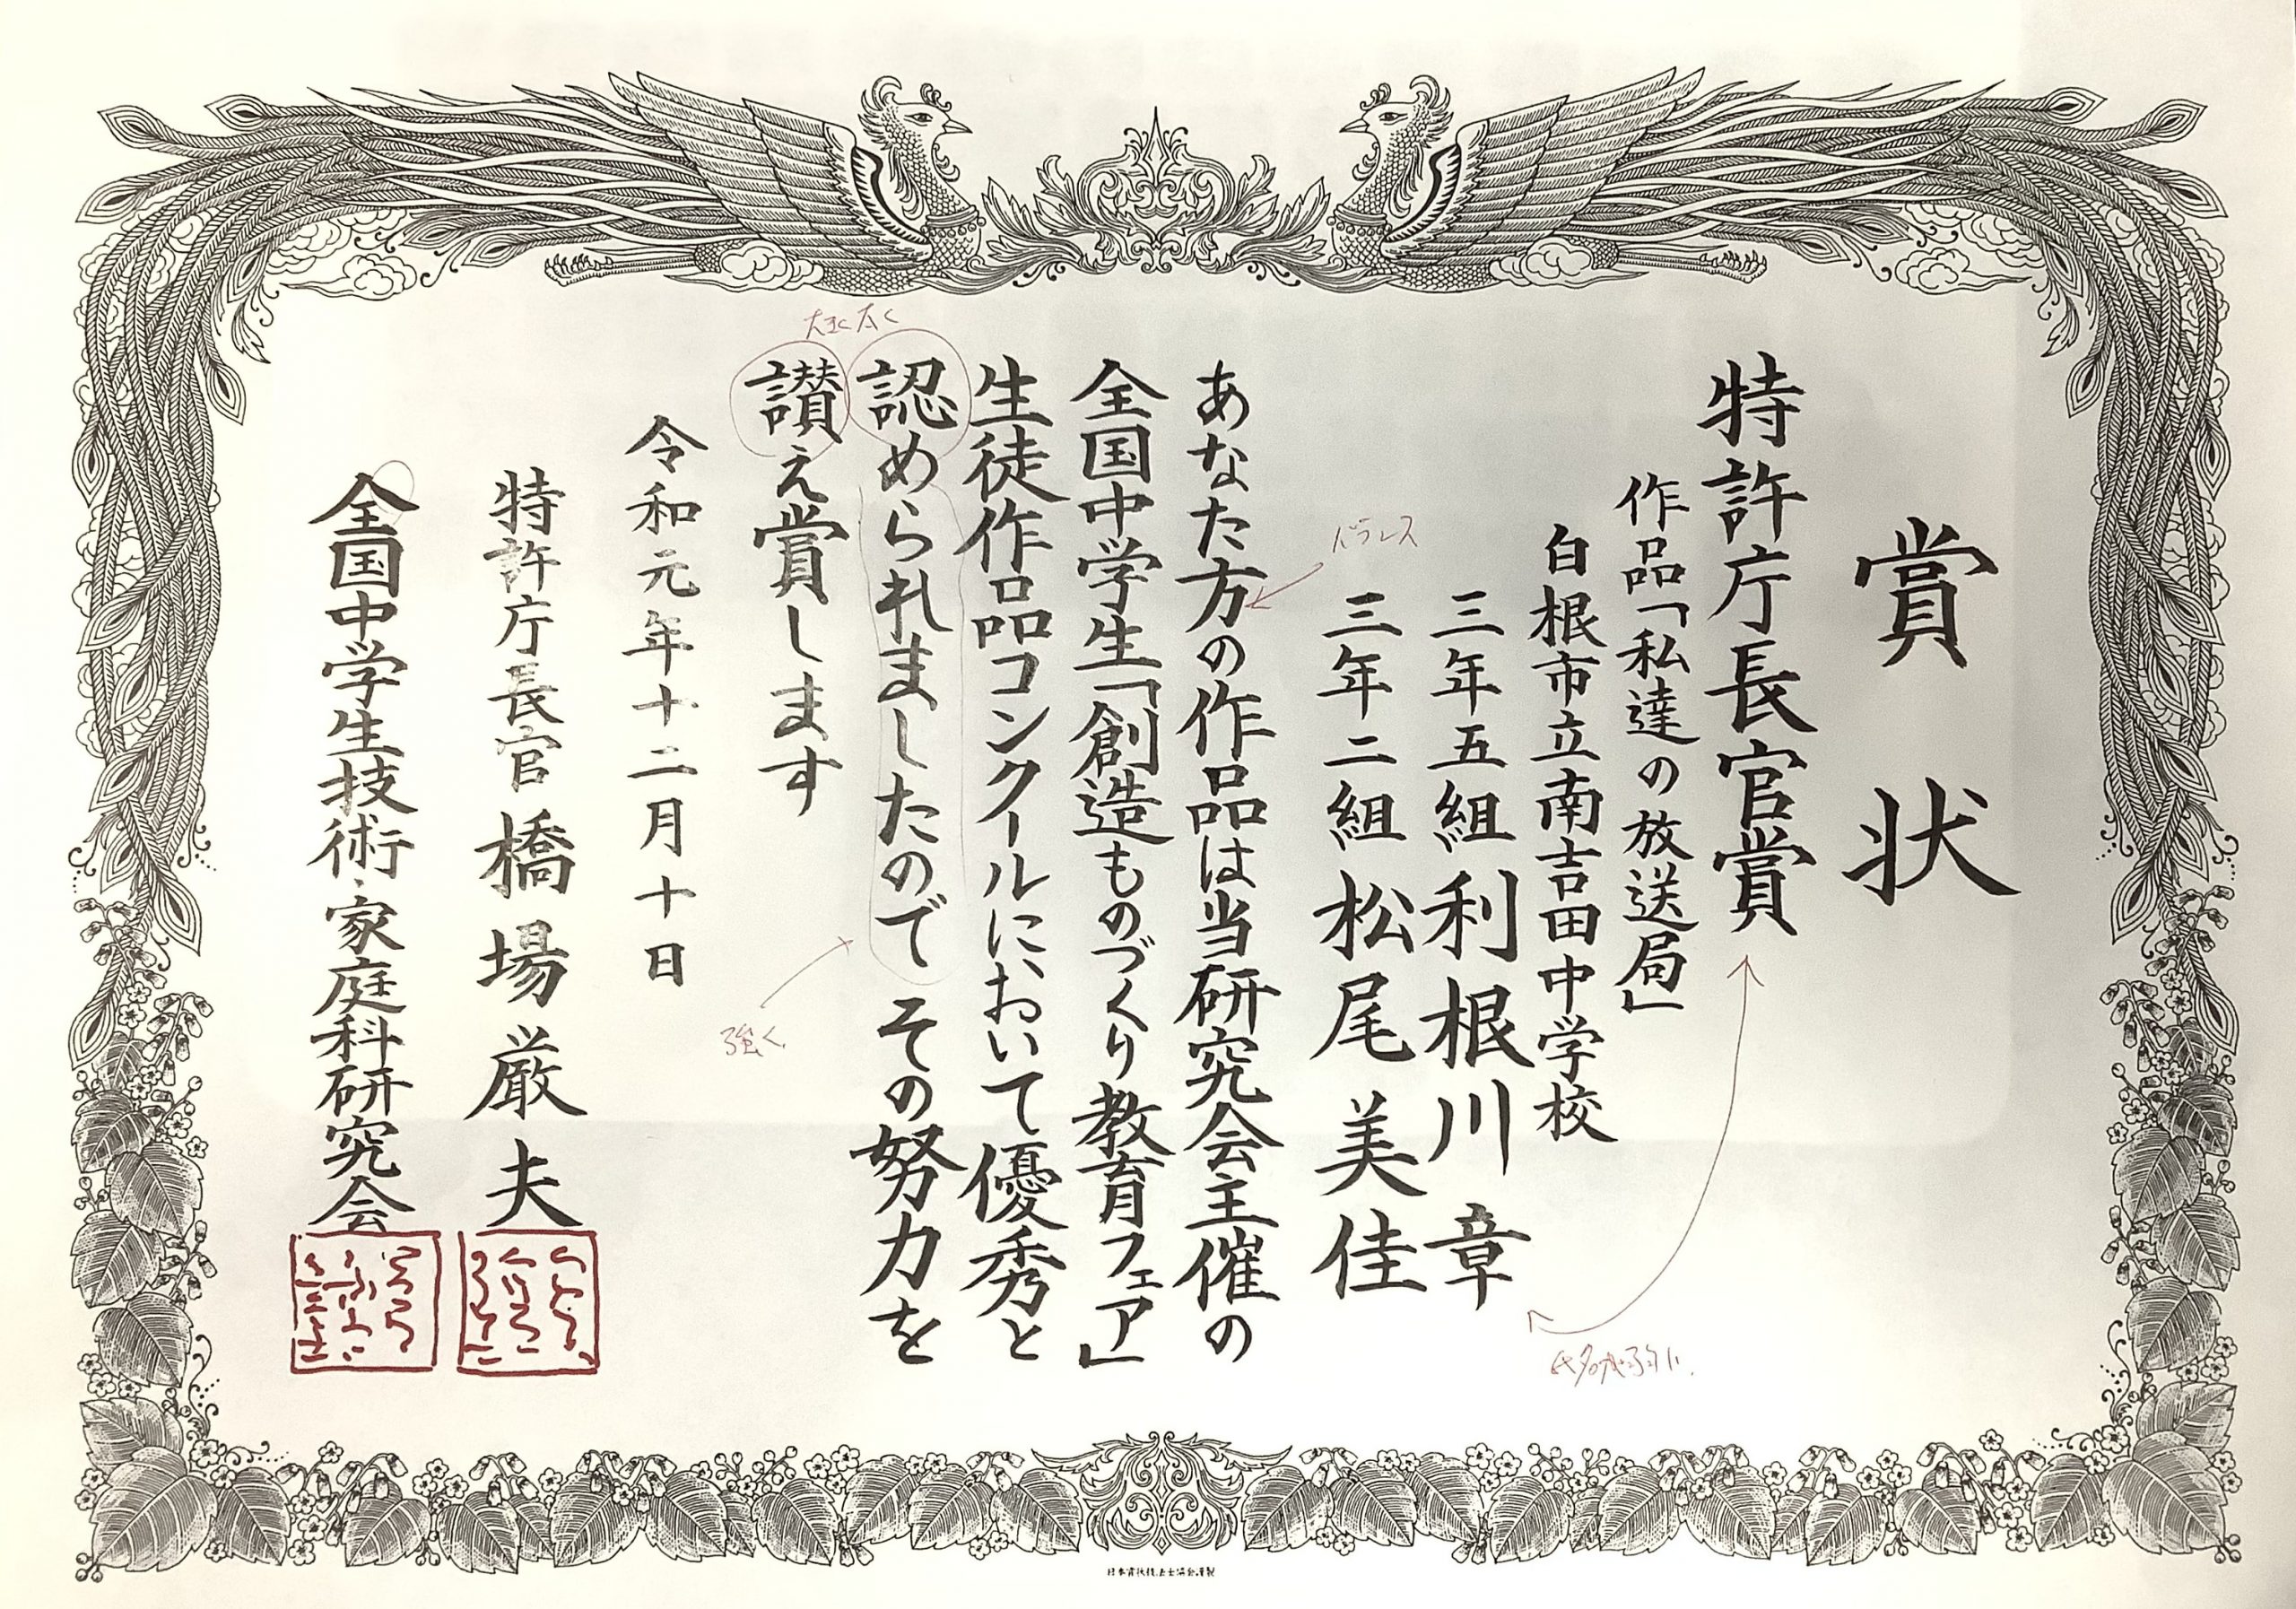 賞状
特許庁長官賞
作品「私達の放送局」
白根市立南吉田中学校
三年五組 利根川章
三年二組 松尾美佳
あなた方の作品は当研究会主催の
全国中学生「創造ものづくり教育フェア」
生徒作品コンクールにおいて優秀と
認められましたのでその努力を
讃え賞します
令和元年十二月十日
特許庁長官 橋場厳夫
全国中学生技術・家庭科研究会
大きく太く
バランス
強く
日本賞状技法士協会謹製